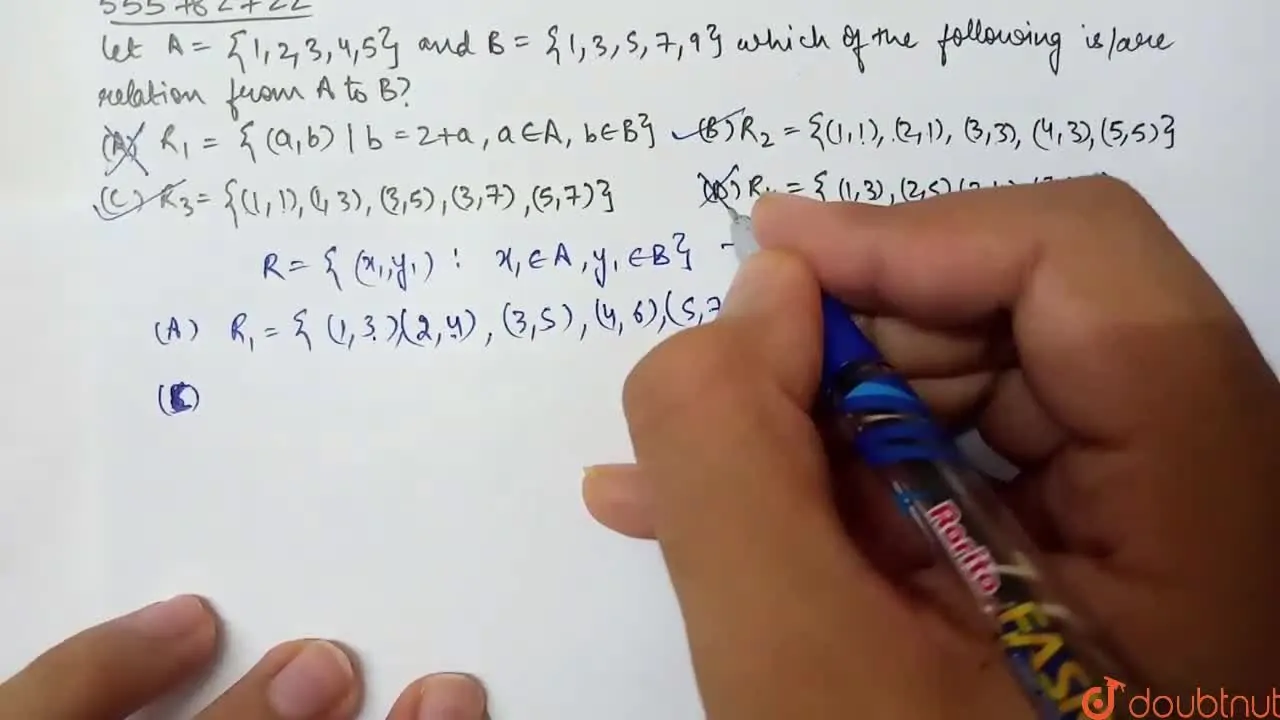 555782722
Let A = {1,2,3,4,5} and B = {1,3,5,7,9} which of the following is/are
relation from A to B?
(A) R₁ = {(a,b) | b = 2+a, a∈A, b∈B} (B) R₂ = {(1,1), (2,1), (3,3), (4,3), (5,5)}
(C) R₃ = {(1,1), (1,3), (3,5), (3,7), (5,7)} = {(1,3), (2,5)
R = {(x₁,y₁) : x₁∈A, y₁∈B}
(A) R₁ = { (1,3)(2,4), (3,5), (4,6),(5,7
Rorito
FAS
doubtnut